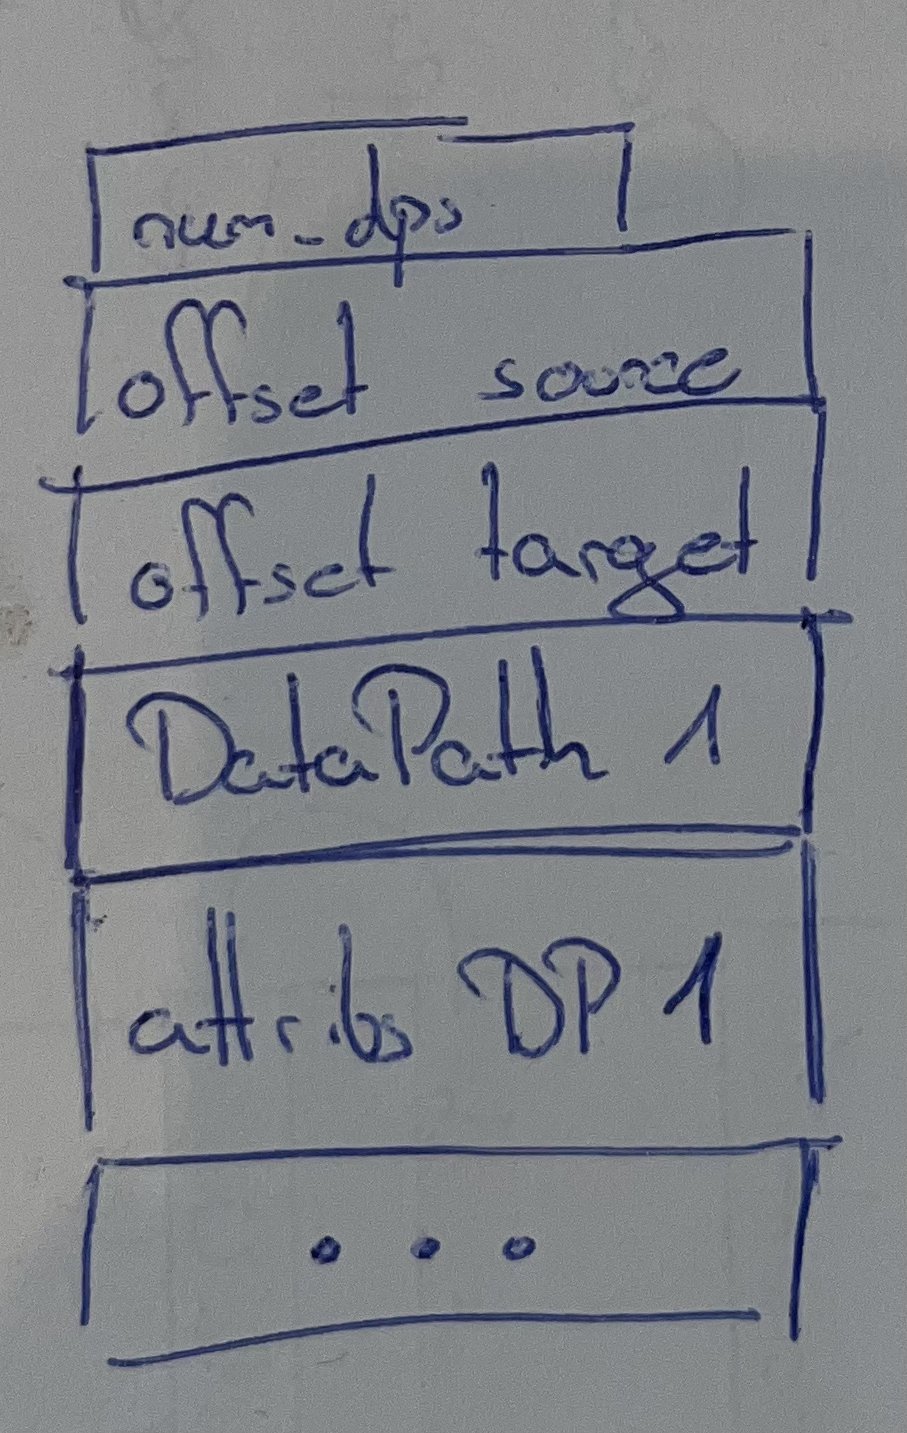 num_dps
offset source
offset target
DataPath 1
attribs DP 1
...